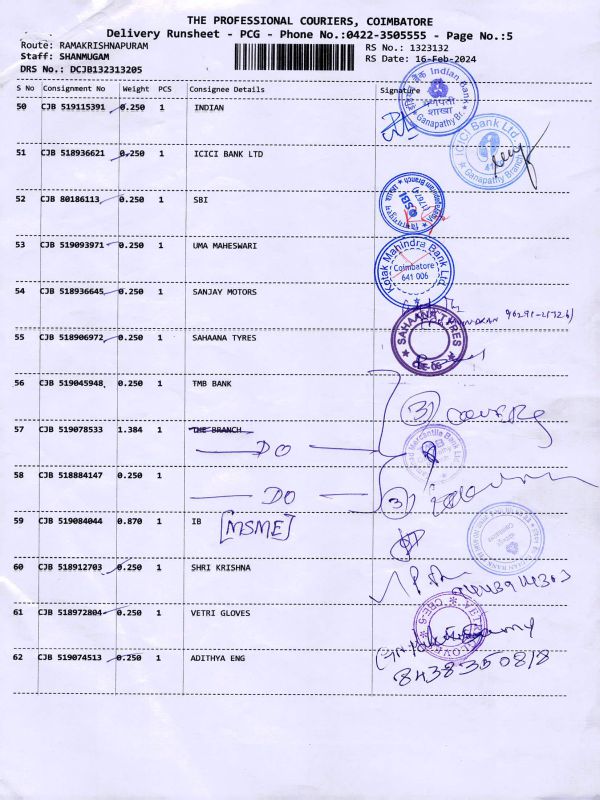 THE PROFESSIONAL COURIERS, COIMBATORE
Delivery Runsheet - PCG - Phone No.:0422-3505555 - Page No.:5
Route: RAMAKRISHNAPURAM
RS No.: 1323132
Staff: SHANMUGAM
RS Date: 16-Feb-2024
DRS No.: DCJB132313205
S No Consignment No Weight PCS Consignee Details Signature
50 CJB 519115391 0.250 1 INDIAN
Indian Bank
गणपती
शाखा
Ganapathy Br.
51 CJB 518936621 0.250 1 ICICI BANK LTD
ICICI Bank Ltd
Ganapathy Branch
52 CJB 80186113 0.250 1 SBI
SBI
53 CJB 519093971 0.250 1 UMA MAHESWARI
Kotak Mahindra Bank Ltd.
Coimbatore
641 006
54 CJB 518936645 0.250 1 SANJAY MOTORS
55 CJB 518906972 0.250 1 SAHAANA TYRES
SAHAANA TYRES
CBE-06
56 CJB 519045948 0.250 1 TMB BANK
57 CJB 519078533 1.384 1 THE BRANCH
DO
Mercantile Bank Ltd
58 CJB 518884147 0.250 1
DO
59 CJB 519084044 0.870 1 IB [MSME]
60 CJB 518912703 0.250 1 SHRI KRISHNA
61 CJB 518972804 0.250 1 VETRI GLOVES
CBE-6
62 CJB 519074513 0.250 1 ADITHYA ENG
8438350818